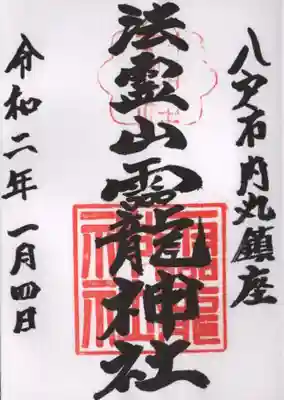 八戸市内丸鎮座
法霊山龗龍神社
令和二年一月四日